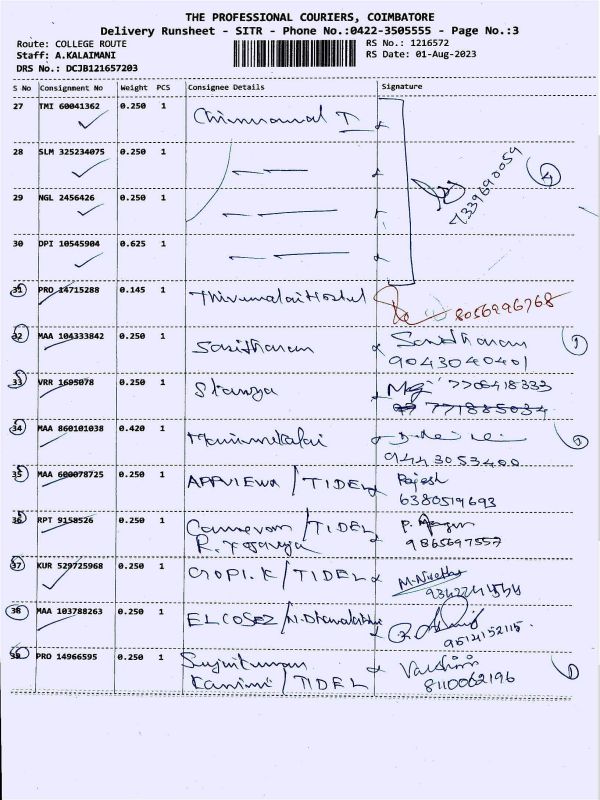 THE PROFESSIONAL COURIERS, COIMBATORE
Delivery Runsheet - SITR - Phone No.:0422-3505555 - Page No.:3
Route: COLLEGE ROUTE
RS No.: 1216572
Staff: A.KALAIMANI
RS Date: 01-Aug-2023
DRS No.: DCJB121657203
S No Consignment No Weight PCS Consignee Details Signature
27 TMI 60041362 0.250 1
28 SLM 325234075 0.250 1
4
7339690059
29 NGL 2456426 0.250 1
30 DPI 10545904 0.625 1
31 PRO 14715288 0.145 1 Thirumalai Hostel
8056996768
32 MAA 104333842 0.250 1
9043040401
33 VRR 1695078 0.250 1 7708418333
34 MAA 860101038 0.420 1 Manimekalai
9443053400
35 MAA 600078725 0.250 1 APPVIEWX / TIDEL Rajesh
6380519693
36 RPT 9158526 0.250 1 / TIDEL
9865697557
37 KUR 529725968 0.250 1 GOPI.K / TIDEL
38 MAA 103788263 0.250 1
9514152115
39 PRO 14966595 0.250 1
/ TIDEL 8110062196